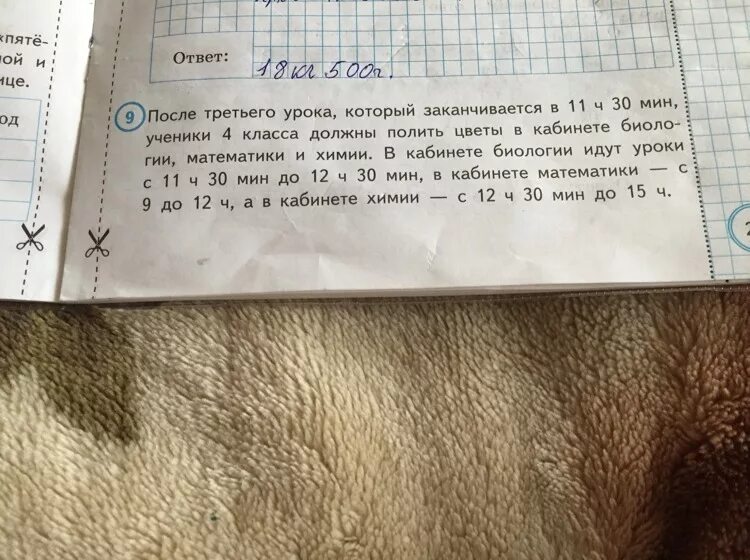 «пятё-
ной и
ице.
од
Ответ:
18 кг 500г.
9 После третьего урока, который заканчивается в 11 ч 30 мин,
ученики 4 класса должны полить цветы в кабинете биоло-
гии, математики и химии. В кабинете биологии идут уроки
с 11 ч 30 мин до 12 ч 30 мин, в кабинете математики — с
9 до 12 ч, а в кабинете химии — с 12 ч 30 мин до 15 ч.